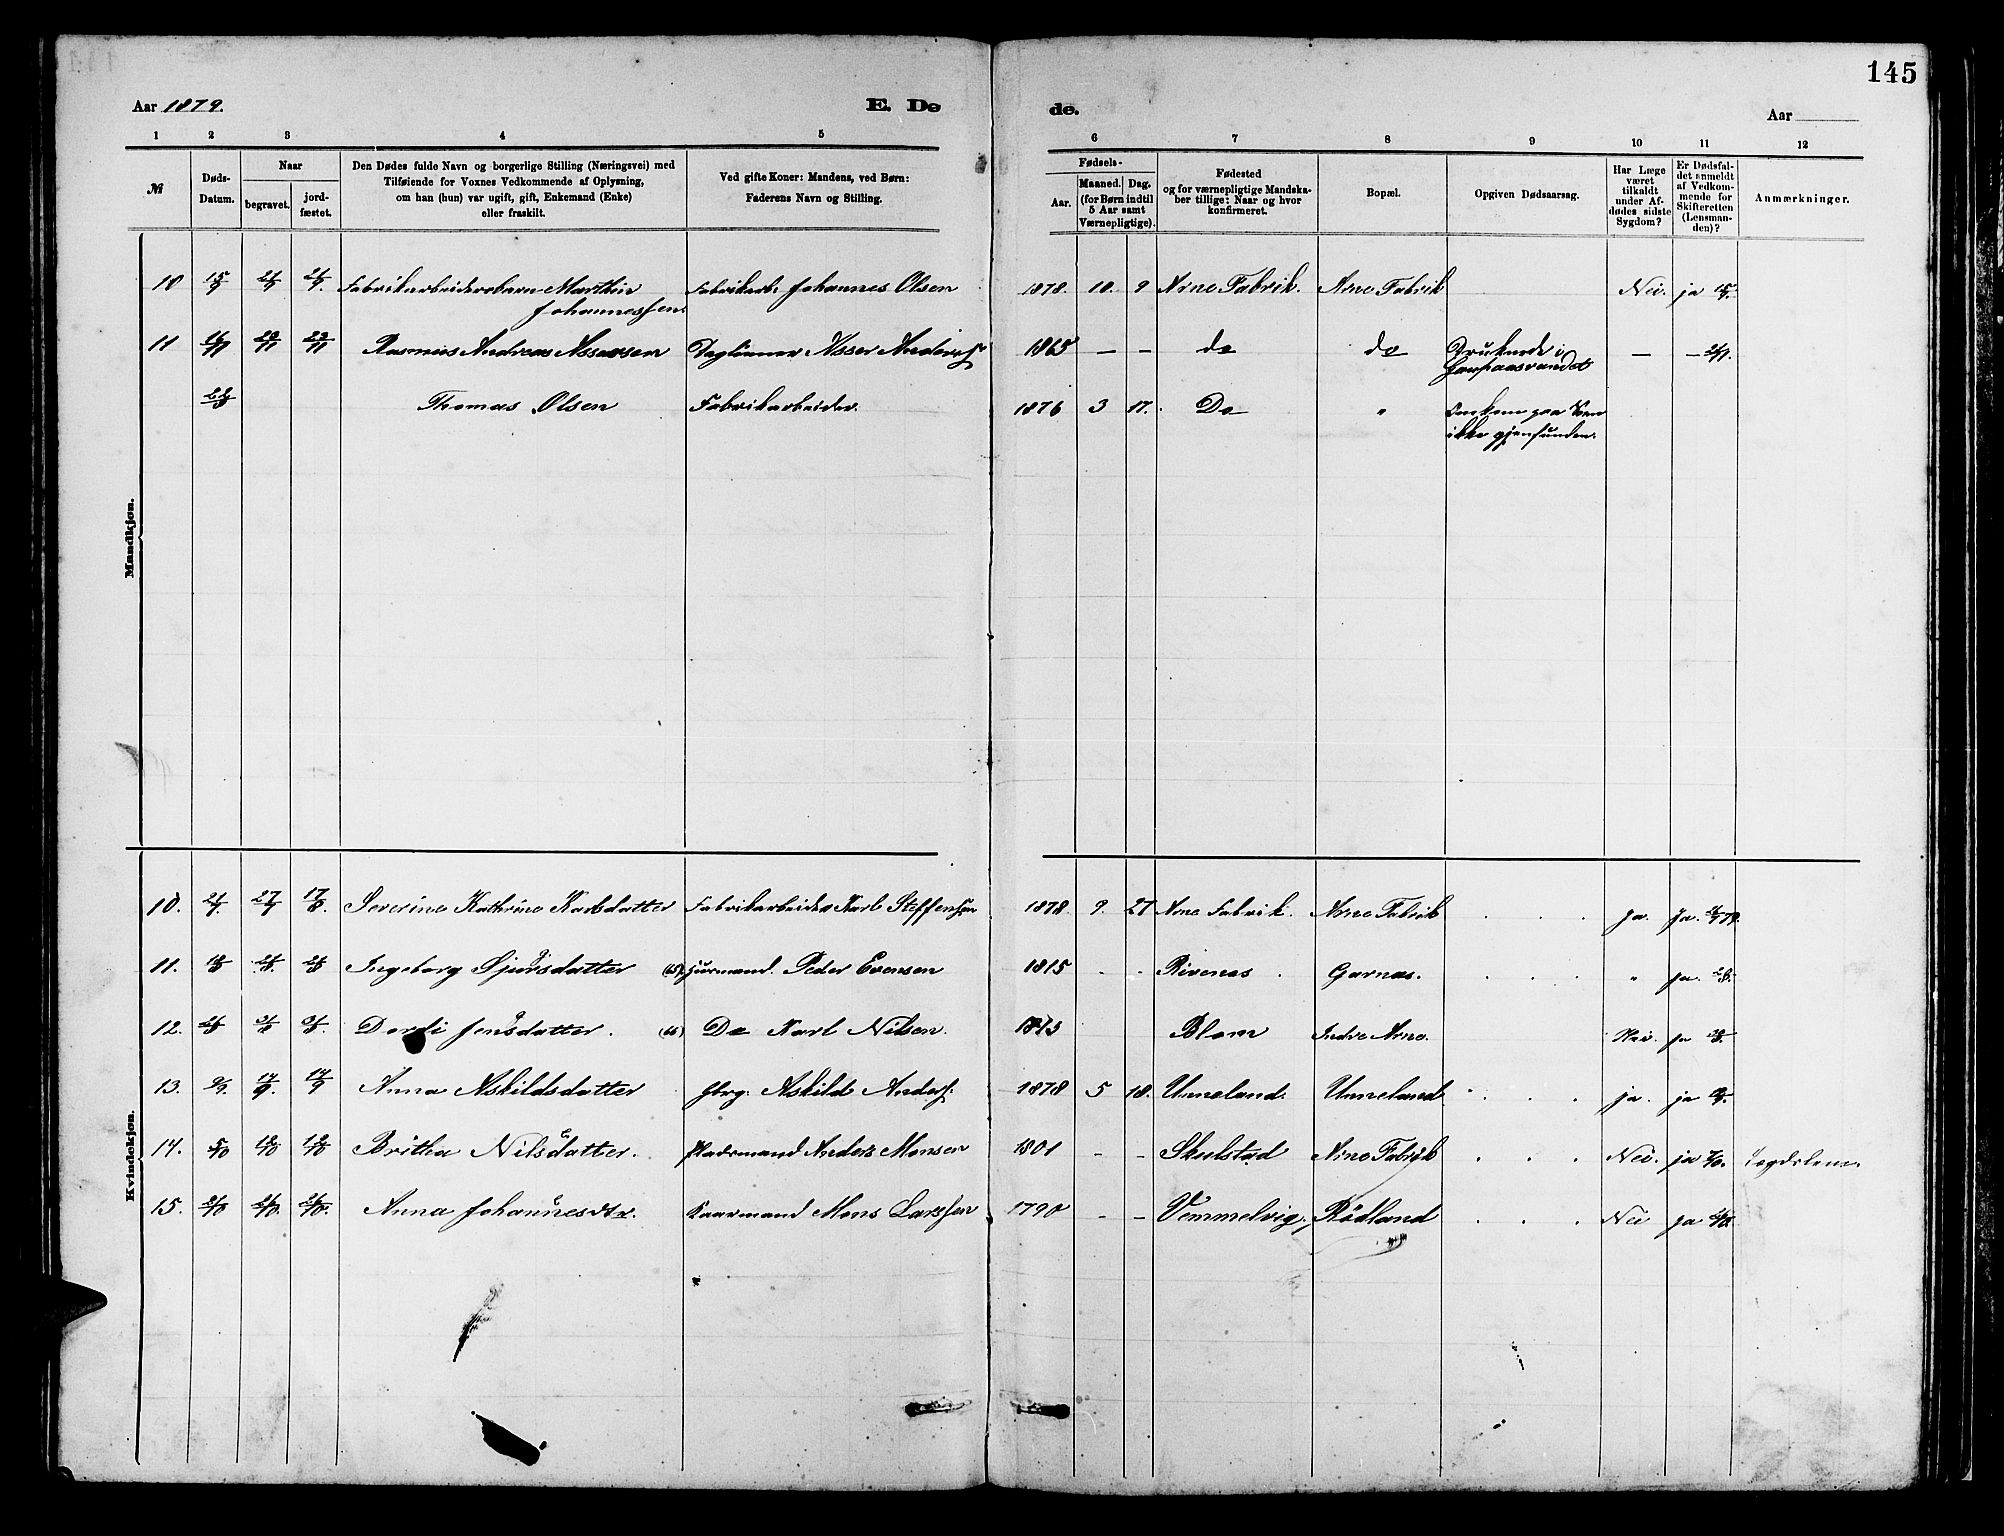 145
Aar 1879.
E. Dø
de.
Aar
1 2 3 4 5
6 7 8 9 10 11 12
№
Døds-
Datum.
Naar
begravet.
jord-
fæstet.
Den Dødes fulde Navn og borgerlige Stilling (Næringsvei) med
Tilføiende for Voxnes Vedkommende af Oplysning,
om han (hun) var ugift, gift, Enkemand (Enke)
eller fraskilt.
Ved gifte Koner: Mandens, ved Børn:
Faderens Navn og Stilling.
Fødsels-
Aar.
Maaned. Dag.
(for Børn indtil
5 Aar samt
Værnepligtige).
Fødested
og for værnepligtige Mandska-
ber tillige: Naar og hvor
konfirmeret.
Bopæl.
Opgiven Dødsaarsag.
Har Læge
været
tilkaldt
under Af-
dødes sidste
Sygdom?
Er Dødsfal-
det anmeldt
af Vedkom-
mende for
Skifteretten
(Lensman-
den)?
Anmærkninger.
Mandkjøn.
10 15/7 21/7 21/7 Fabrikarbeidersbarn Marthin Fabrikarb. Johannes Olsen 1878. 10. 9 Arne Fabrik. Arne Fabrik Nei. ja 15/7.
Johannessen.
11 16/11 23/11 23/11 Rasmus Andreas Assersen Daglönner Asser Anders 1865 — — do do Druknede i — —
Gaupaasvandet
Thomas Olsen Fabrikarbeider. 1876 3 17. Do " Omkom paa Søen
ikke gjenfunden.
Kvindekjøn.
10. 27/7 17/8 Severine Kathrine Karlsdatter Fabrikarbeider Karl Steffensen 1878. 9. 27 Arne Fabrik. Arne Fabrik ja. ja.
11. Ingeborg Sjursdatter (65) Peder Evensen 1815 - - Rivenes Garnæs. " ja.
12. Dordi Jensdatter. (66) Do Karl Nilsen. 1813 Blom Indre Arne. Nei. ja
13. 9/9. 17/9. 17/9 Anna Askildsdatter Gbrg. Askild Anders. 1878 5 18. Unneland. Unneland ja. ja
14. 5/10 12/10 12/10 Britha Nilsdatter. Pladsmand Anders Monsen 1801 - - Skulstad Arne Fabrik Nei. ja 7/10. Lægdslem.
15. Anna Johannesdtr. Kaarmand Mons Larssen 1790 - - Vemmelvig. Rödland Nei ja